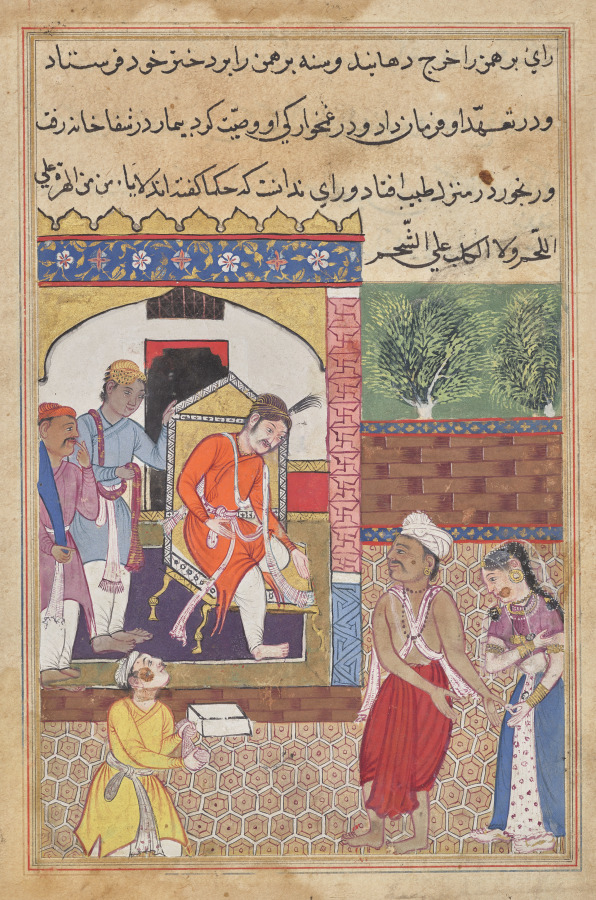 رای برهمن را خرج دهانید برهمن را بر دختر خود فرستاد
و در تعهّد او فرمان داد و در غمخوارکی او وصیّت کرد بیمار در شفا خانه رفت
و رنجور در منزل طبیب افتاد و رای ندانست که حکما گفته اند لا یامن من الهرة علی
اللّحم ولا الکلب علی الشّحم